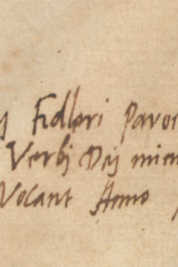 Fidleri Paro
Verbi Dei mien
Vocant Anno